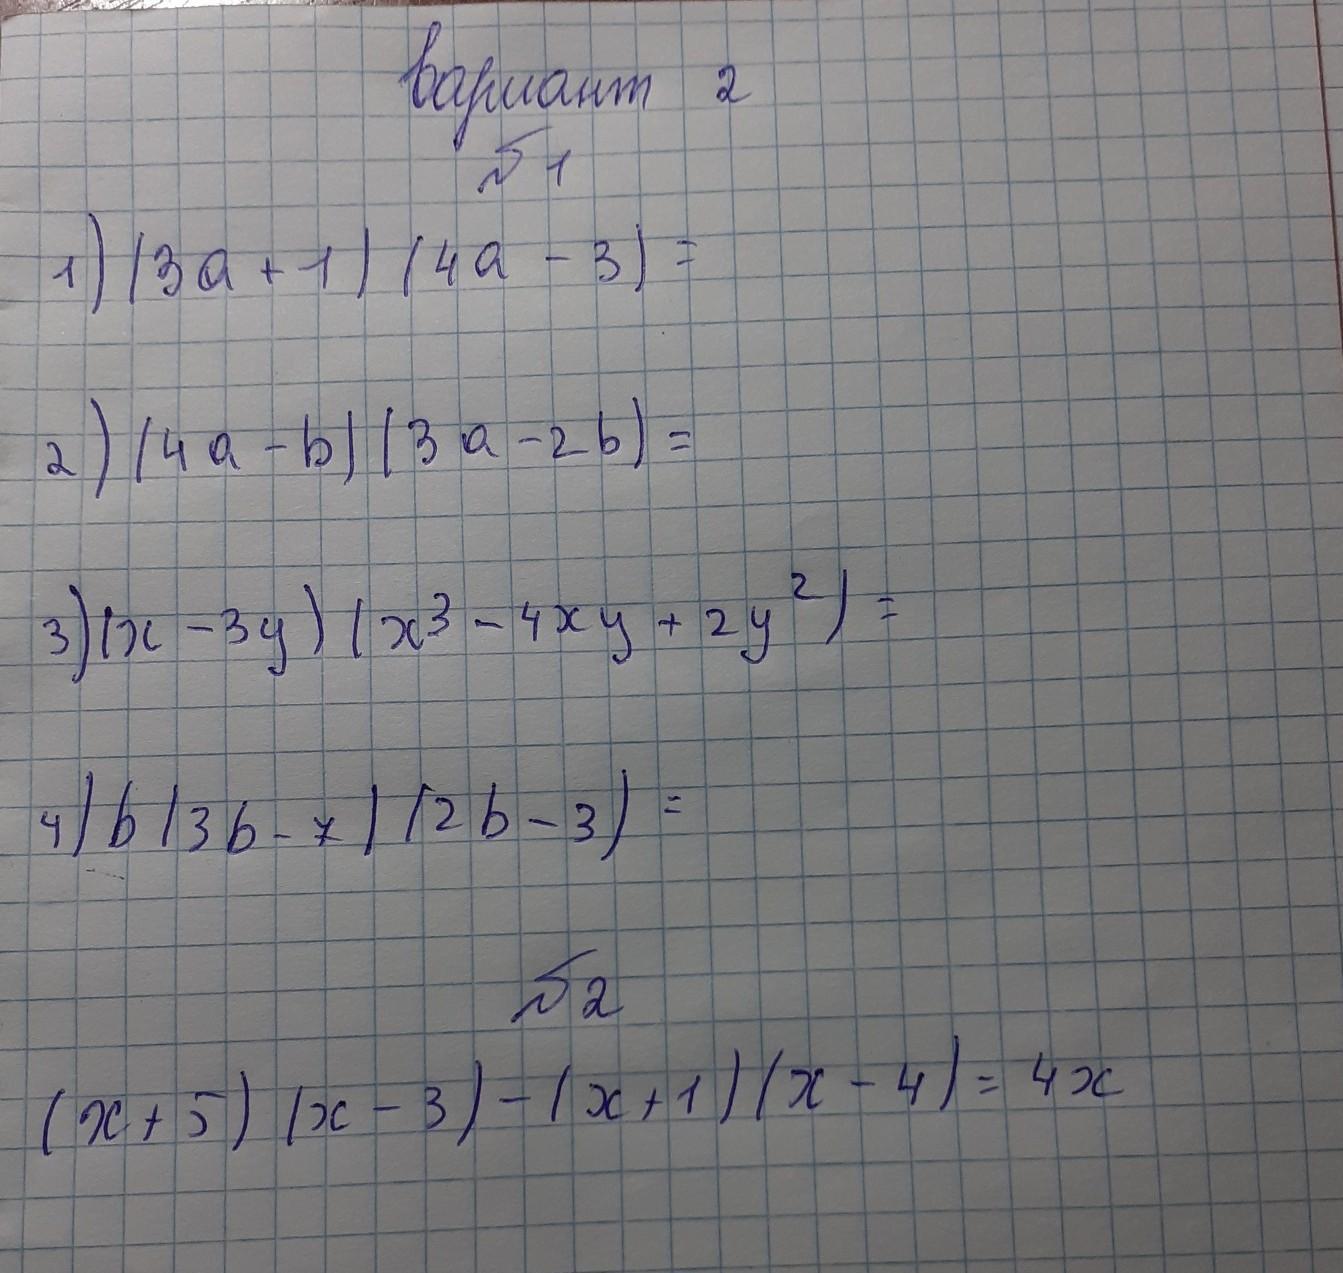 Вариант 2
№1
1) (3a + 1) (4a - 3) =
2) (4a - b) (3a - 2b) =
3) (x - 3y) (x³ - 4xy + 2y²) =
4) b (3b - 7) (2b - 3) =
№2
(x + 5) (x - 3) - (x + 1) (x - 4) = 4x